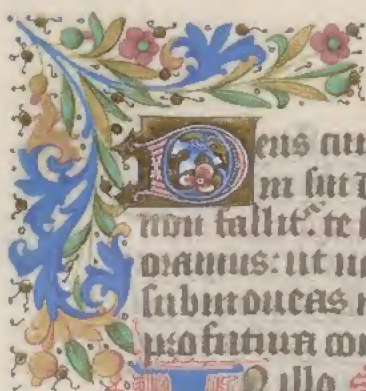 Deus cuiu
in sui
non fallit᷑. te
oramus: ut no
submoueas
profutura con
N illo